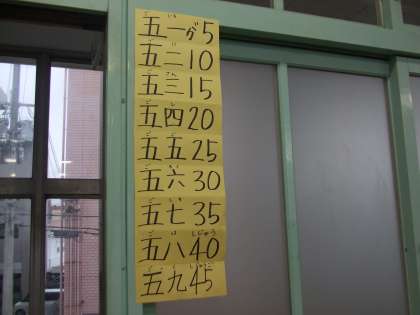 五一が5
五二10
五三15
五四20
五五25
五六30
五七35
五八40
五九45